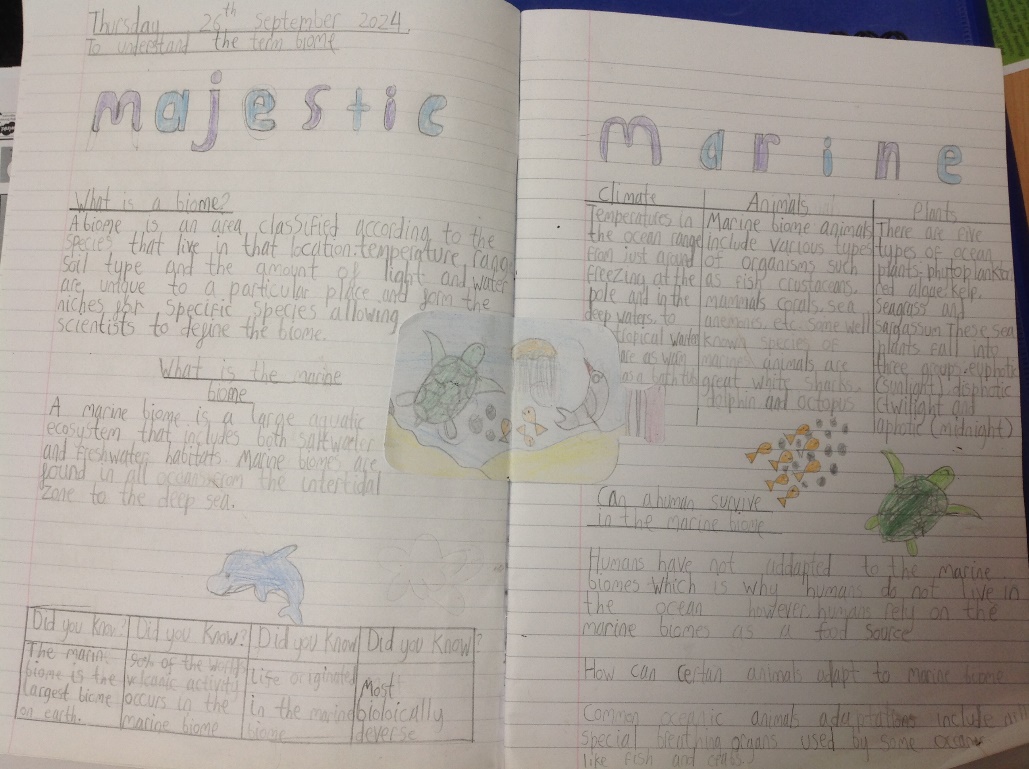 Thursday 26th September 2024
To understand the term biome
majestic
What is a biome?
A biome is an area classified according to the
species that live in that location. temperature, range
soil type and the amount of light and water
are unique to a particular place and form the
niches for specific species allowing
scientists to define the biome.
What is the marine
biome
A marine biome is a large aquatic
ecosystem that includes both saltwater
and freshwater habitats. Marine biomes are
found in all oceans from the intertidal
zone to the deep sea.
Did you know?
The marin
biome is the
largest biome
on earth.
Did you know?
of the world's
volcanic activity
occurs in the
marine biome
Did you know
Life originated
in the marine
biome
Did you know?
Most
bioloically
deverse
marine
Climate
Temperatures in
the ocean range
from just around
freezing at the
pole and in the
deep waters, to
tropical water
are as warm
as a bath tub
Animals
Marine biome animals
include various types
of organisms such
as fish crustaceans,
mammals corals, sea
anemonis, etc. Some well
known species of
marine animals are
great white sharks.
dolphin and octopus
Plants
There are five
types of ocean
plants-phytoplankton
red algue, kelp,
seagass and
sargassum These sea
plants fall into
three groups, euphotic
(sunlight) disphotic
(twilight and
aphotic (midnight)
Can a human survive
in the marine biome
Humans have not addapted to the marine
biomes. Which is why humans do not live in
the ocean however, humans rely on the
marine biomes as a food source
How can certian animals adapt to marine biome
Common oceanic animals adaptations include
special breathing organs used by some
like fish and crabs.